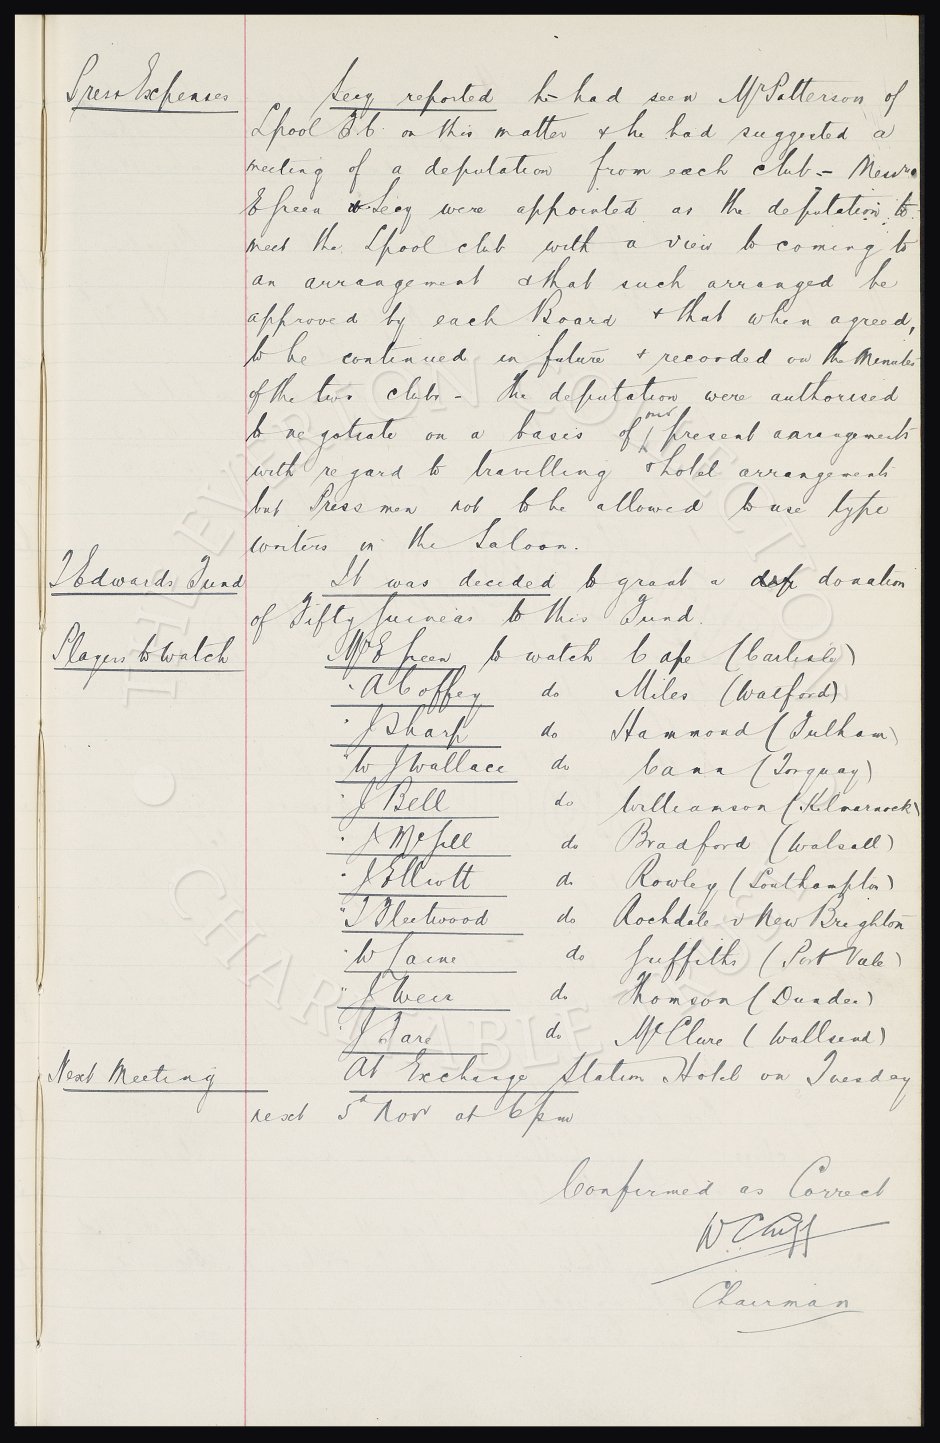 Press Expenses
Secy reported he had seen Mr Patterson of
Lpool F.C. on this matter & he had suggested a
meeting of a deputation from each club - Messrs
E Green & Secy were appointed as the deputation to
meet the Lpool club with a view to coming to
an arrangement & that such arranged be
approved by each Board & that when agreed,
to be continued in future & recorded on the Minutes
of the two clubs - the deputation were authorised
to negotiate on a basis of our present arrangements
with regard to travelling & hotel arrangements
but Press men not to be allowed to use type
writers in the Saloon.
T Edwards Fund
It was decided to grant a donation
of Fifty Guineas to this Fund.
Players to watch
Mr E Green to watch Cape (Carlisle)
" A Coffey do Miles (Watford)
" J Sharp do Hammond (Fulham)
" W J Wallace do Cann (Torquay)
" J Bell do Williamson (Kilmarnock)
" J McGill do Bradford (Walsall)
" J Elliott do Rowley (Southampton)
" T Fleetwood do Rochdale v New Brighton
" W Saine do Griffiths (Port Vale)
" J Weir do Thomson (Dundee)
" J Fare do McClure (Wallsend)
Next Meeting
At Exchange Station Hotel on Tuesday
next 5th Novr at 6 pm
Confirmed as Correct
W. C. Cuff
Chairman
THE EVERTON COLLECTION
CHARITABLE TRUST